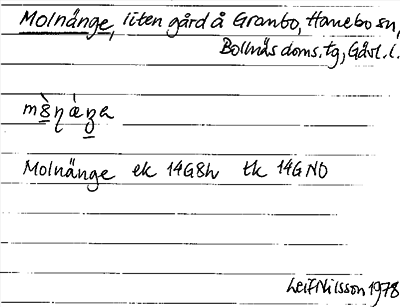 Molnänge, liten gård å Granbo, Hanebo sn,
Bollnäs doms. tg, Gävl. l.
Molnänge ek 14G8h tk 14G NO
Leif Nilsson 1978